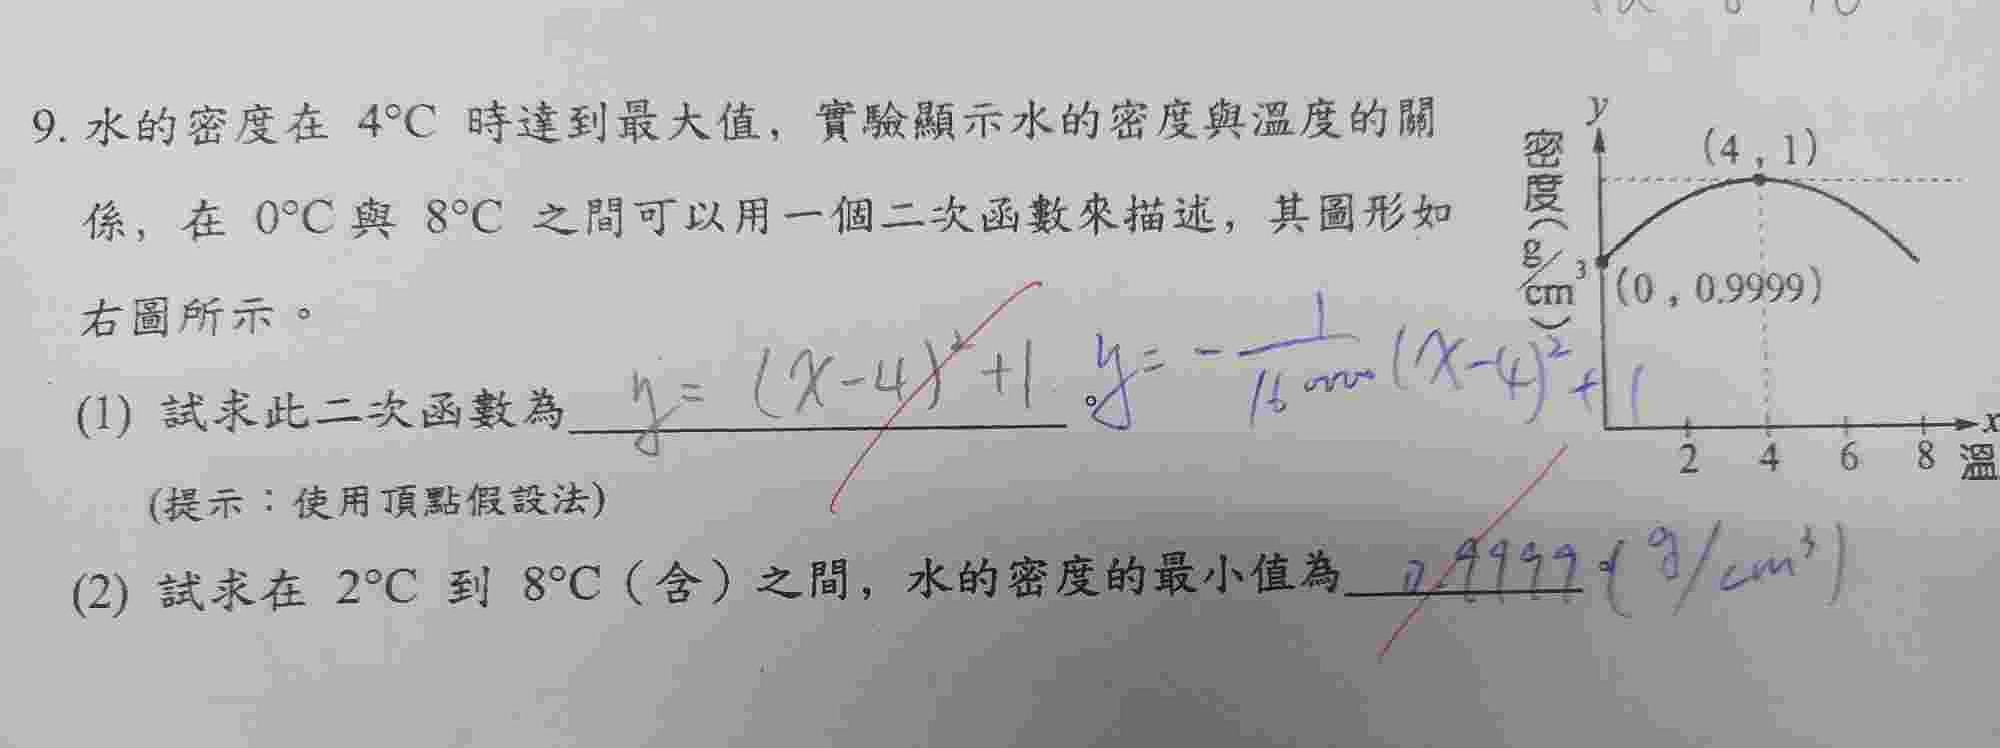 9. 水的密度在 4°C 時達到最大值，實驗顯示水的密度與溫度的關
係，在 0°C 與 8°C 之間可以用一個二次函數來描述，其圖形如
右圖所示。
(1) 試求此二次函數為 y = (x-4)²+1 。 y = -1/160000 (x-4)² + 1
(提示：使用頂點假設法)
(2) 試求在 2°C 到 8°C（含）之間，水的密度的最小值為 0.9999 (g/cm³)
y
密度(g/cm³)
(4 , 1)
(0 , 0.9999)
x
2 4 6 8 溫